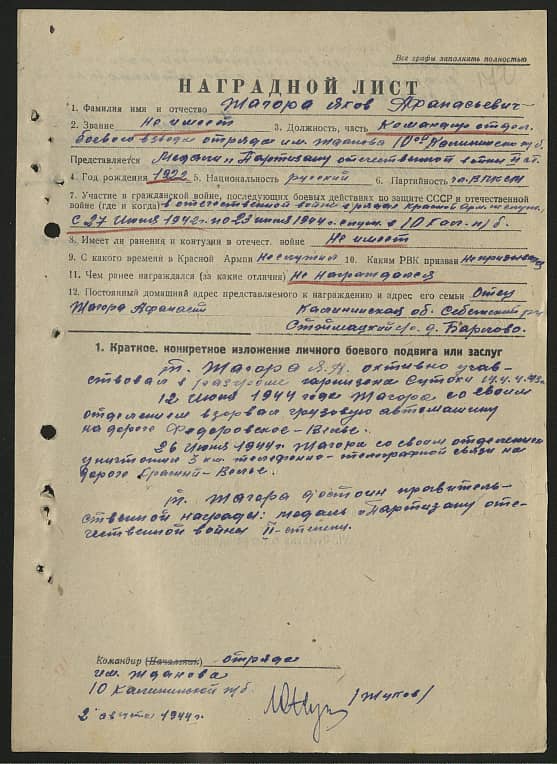 Все графы заполнить полностью
НАГРАДНОЙ ЛИСТ
1. Фамилия имя и отчество Жагора Яков Афанасьевич
2. Звание Не имеет 3. Должность, часть Командир отдел.
боевого взвода отряда им. Жданова 10ой Калининской п/б
Представляется Медали „Партизану отечественной войны II ст.
4. Год рождения 1922 5. Национальность русский 6. Партийность чл. ВЛКСМ
7. Участие в гражданской войне, последующих боевых действиях по защите СССР и отечественной
войне (где и когда) в отечественной войне в рядах Красной Арм. не служ.,
с 27 июня 1942г по 23 июля 1944г. служ. в 10 Кал. п/б.
8. Имеет ли ранения и контузии в отечест. войне Не имеет
9. С какого времени в Красной Армии Не служил 10. Каким РВК призван Не призывался
11. Чем ранее награждался (за какие отличия) Не награждался
12. Постоянный домашний адрес представляемого к награждению и адрес его семьи Отец
Жагора Афанасий Калининская об. Себежский р-н
с/с. д.
1. Краткое, конкретное изложение личного боевого подвига или заслуг
т. Жагора Я.А. активно учав-
ствовал в разгроме гарнизона Сутоки
12 Июня 1944 года Жагора со своим
отделением взорвал грузовую автомашину
на дороге Федоровское-Велье.
26 Июня 1944г. Жагора со своим отделением
уничтожил 3 км. телефонно-телеграфной связи на
дороге Красный-Велье.
т. Жагора достоин правитель-
ственной награды: медаль „Партизану оте-
чественной войны II-степени.
Командир (Начальник) отряда
им. Жданова
10 Калининской п/б.
/Жуков/
2 августа 1944г.